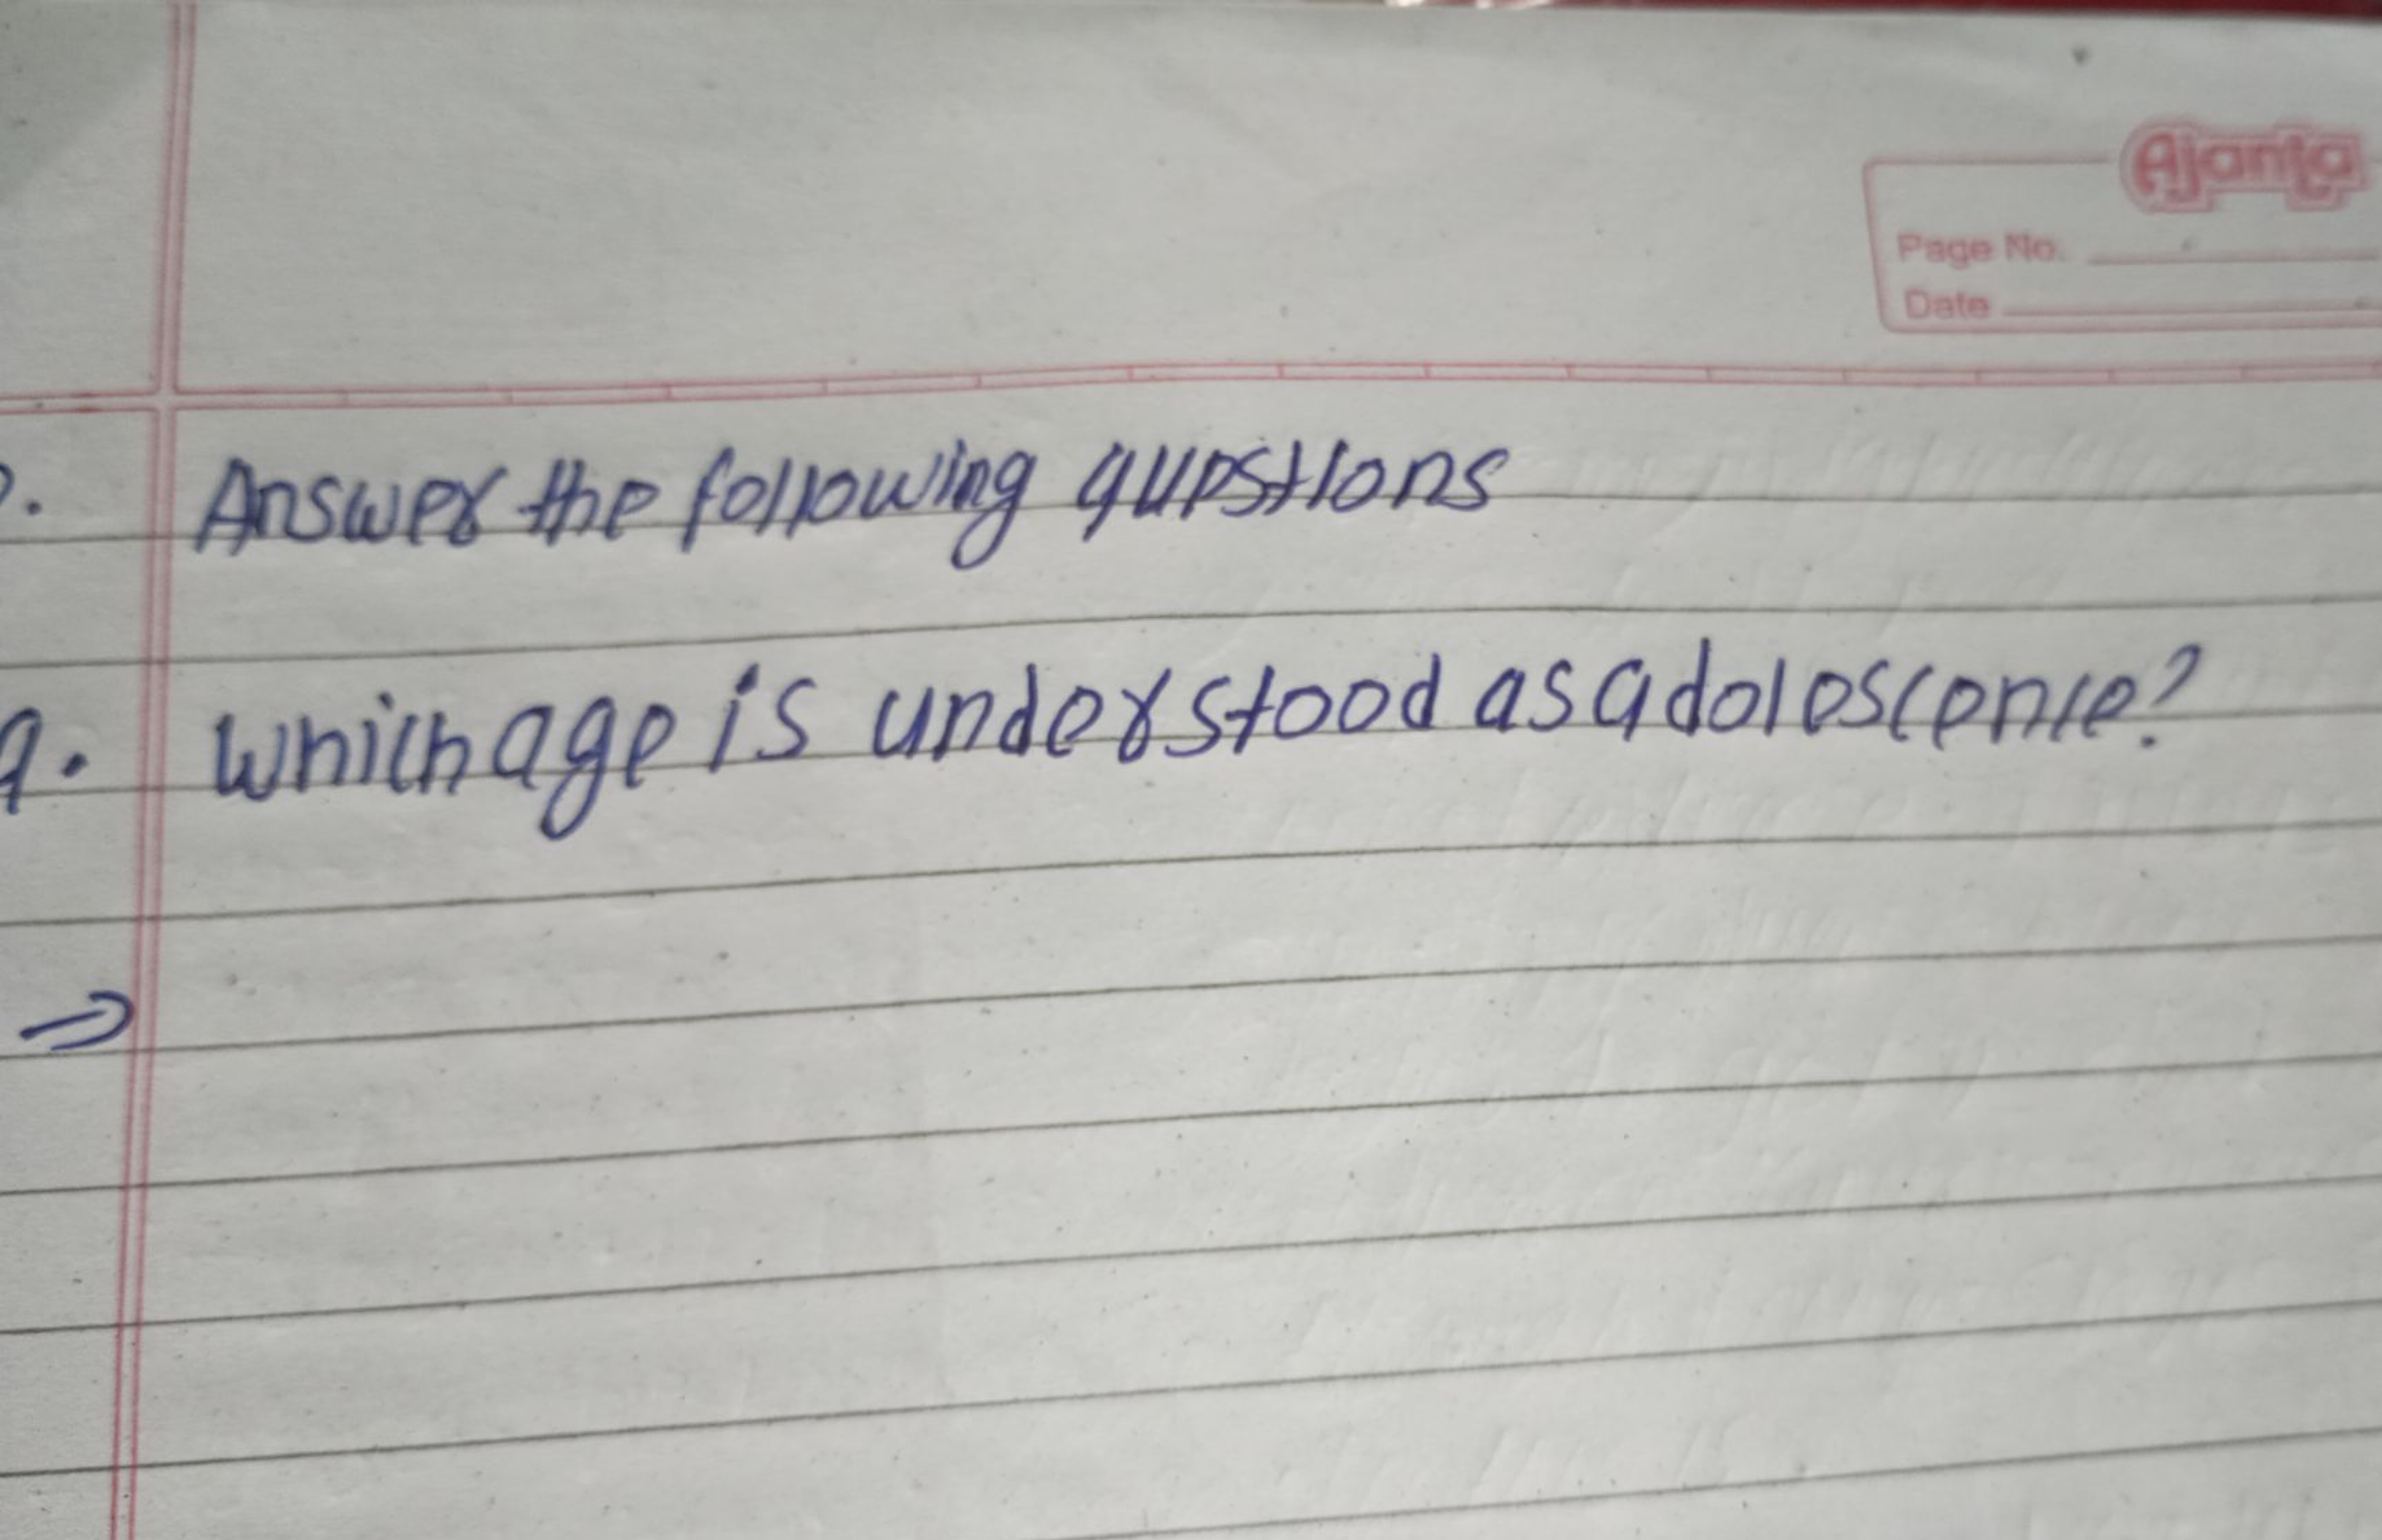 Ajanta
Page No.
Date
Answer the following questions
a. which age is understood as adolescence?
⇒